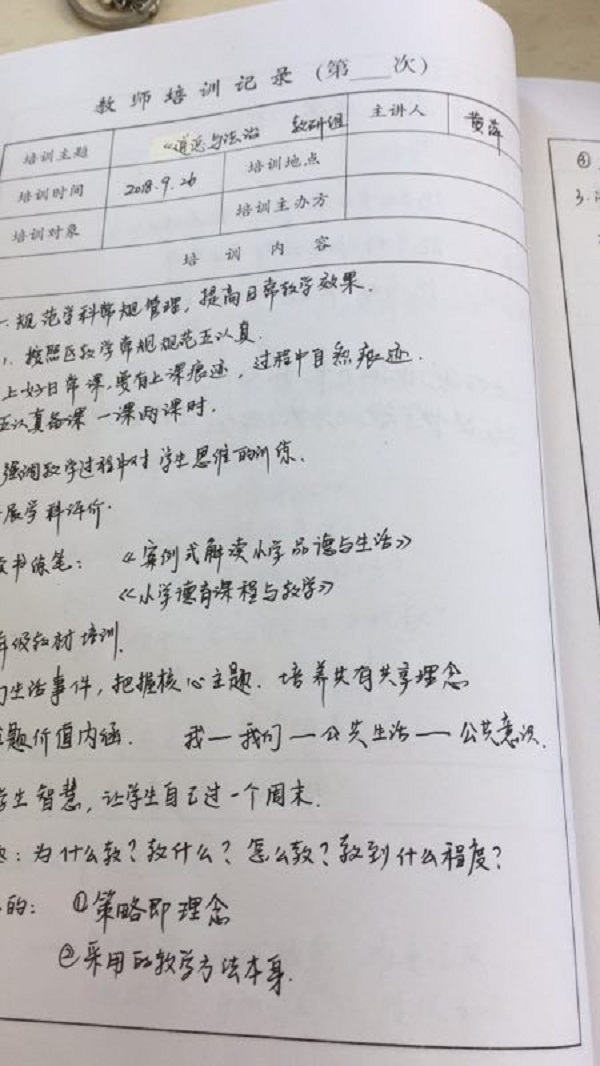 教师培训记录（第___次）
培训主题 《道德与法治 教研组 主讲人 黄萍
培训时间 2018.9.26 培训地点
培训对象 培训主办方
培训内容
一.规范学科常规管理，提高日常教学效果.
1.按照区教学常规规范五认真.
上好日常课.要有上课痕迹，过程中自然痕迹.
五认真备课 一课两课时.
强调教学过程中对学生思维的训练.
展学科评价.
书练笔：《案例式解读小学品德与生活》
《小学德育课程与教学》
年级教材培训.
生活事件，把握核心主题.培养共有共享理念
题价值内涵. 我—我们—公共生活—公共意识.
学生智慧，让学生自己过一个周末.
：为什么教？教什么？怎么教？教到什么程度？
的：①策略即理念
②采用的教学方法本身.
④
3.